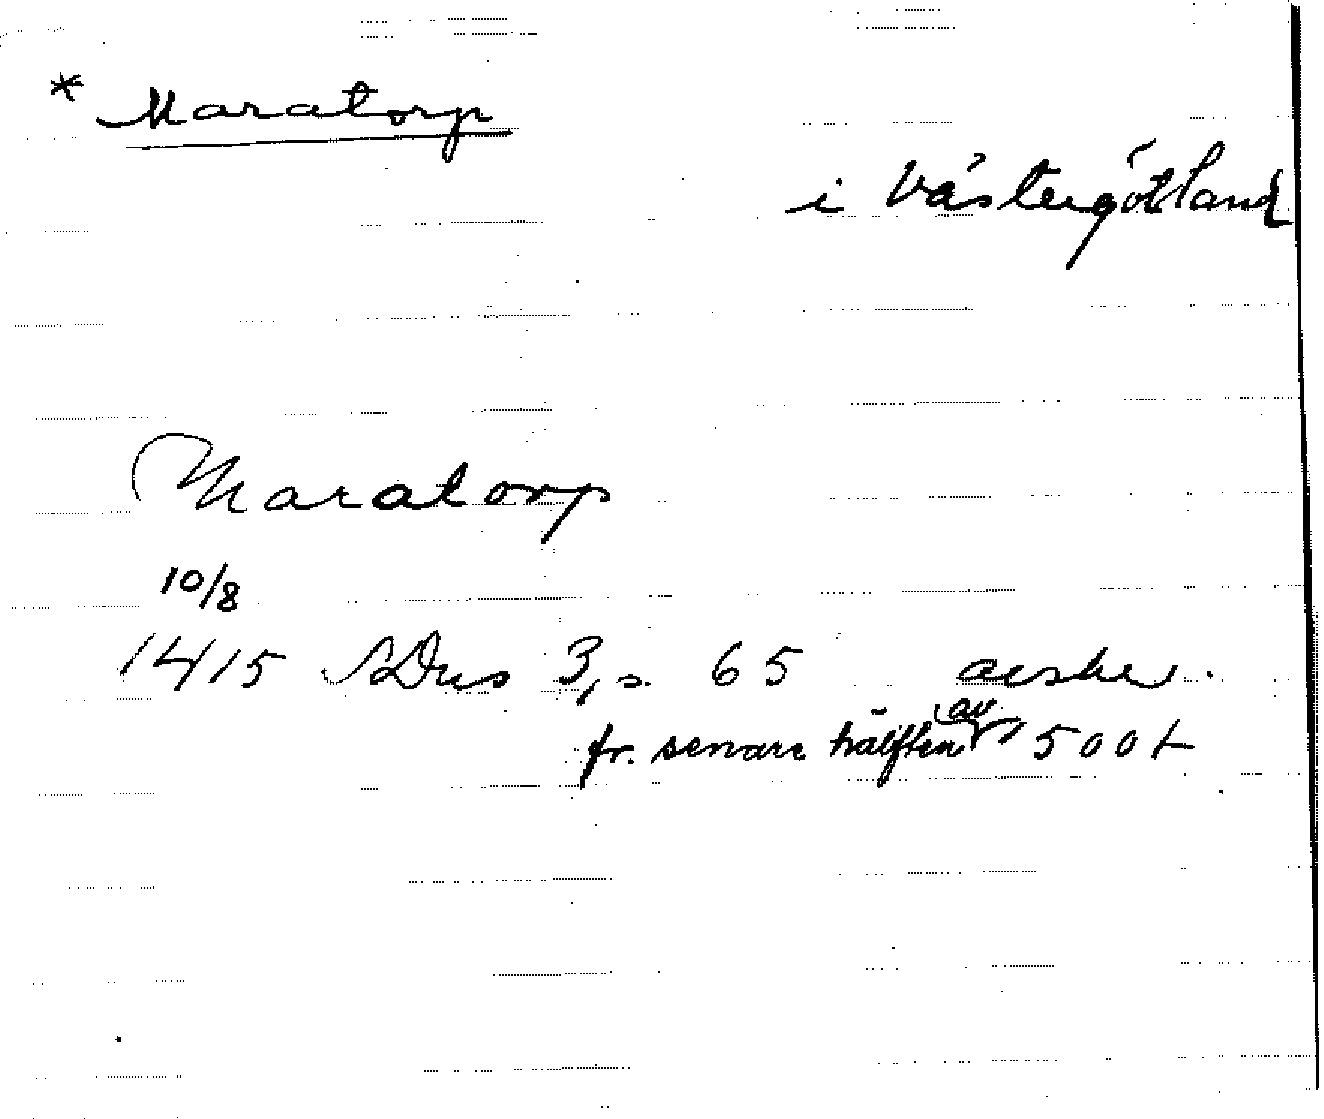 * Maratorp
i Västergötland
Maratorp
10/8
1415 SDns 3, s. 65
fr. senare hälften av 1500 t